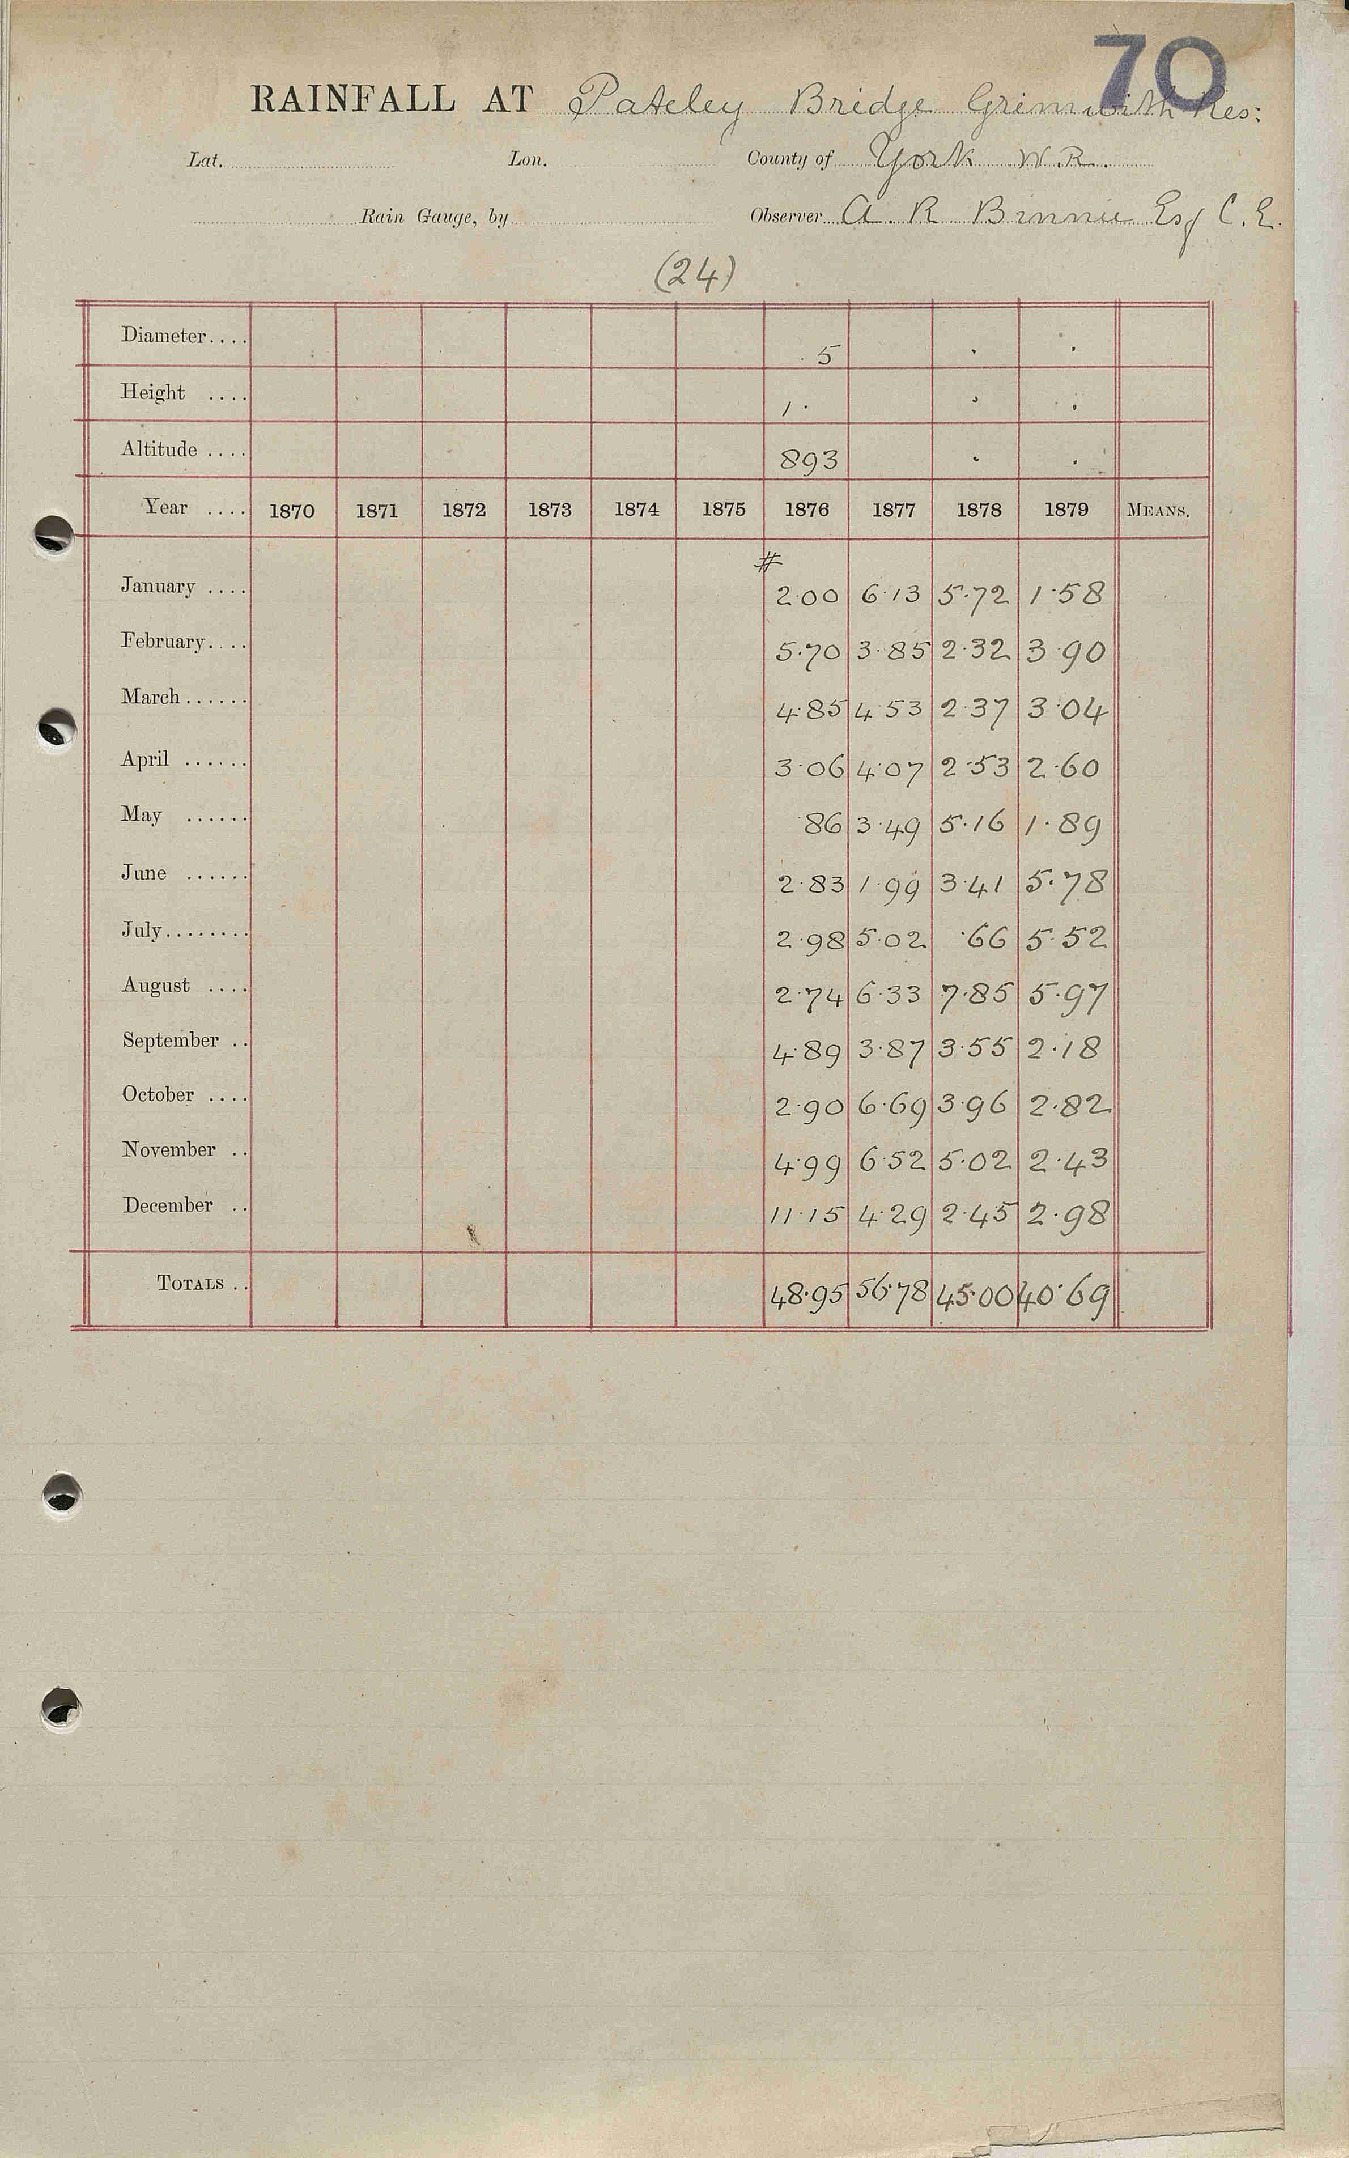 70
RAINFALL AT Pateley Bridge Grimwith Res:
Lat. Lon. County of York W.R.
Rain Gauge, by Observer A. R Binnie Esq C.E.
(24)
Diameter.... 5
Height .... 1.
Altitude .... 893
Year .... 1870 1871 1872 1873 1874 1875 1876 1877 1878 1879 MEANS.
#
January .... 2.00 6.13 5.72 1.58
February.... 5.70 3.85 2.32 3.90
March...... 4.85 4.53 2.37 3.04
April ...... 3.06 4.07 2.53 2.60
May ...... .86 3.49 5.16 1.89
June ...... 2.83 1.99 3.41 5.78
July........ 2.98 5.02 .66 5.52
August .... 2.74 6.33 7.85 5.97
September .. 4.89 3.87 3.55 2.18
October .... 2.90 6.69 3.96 2.82
November .. 4.99 6.52 5.02 2.43
December .. 11.15 4.29 2.45 2.98
TOTALS .. 48.95 56.78 45.00 40.69